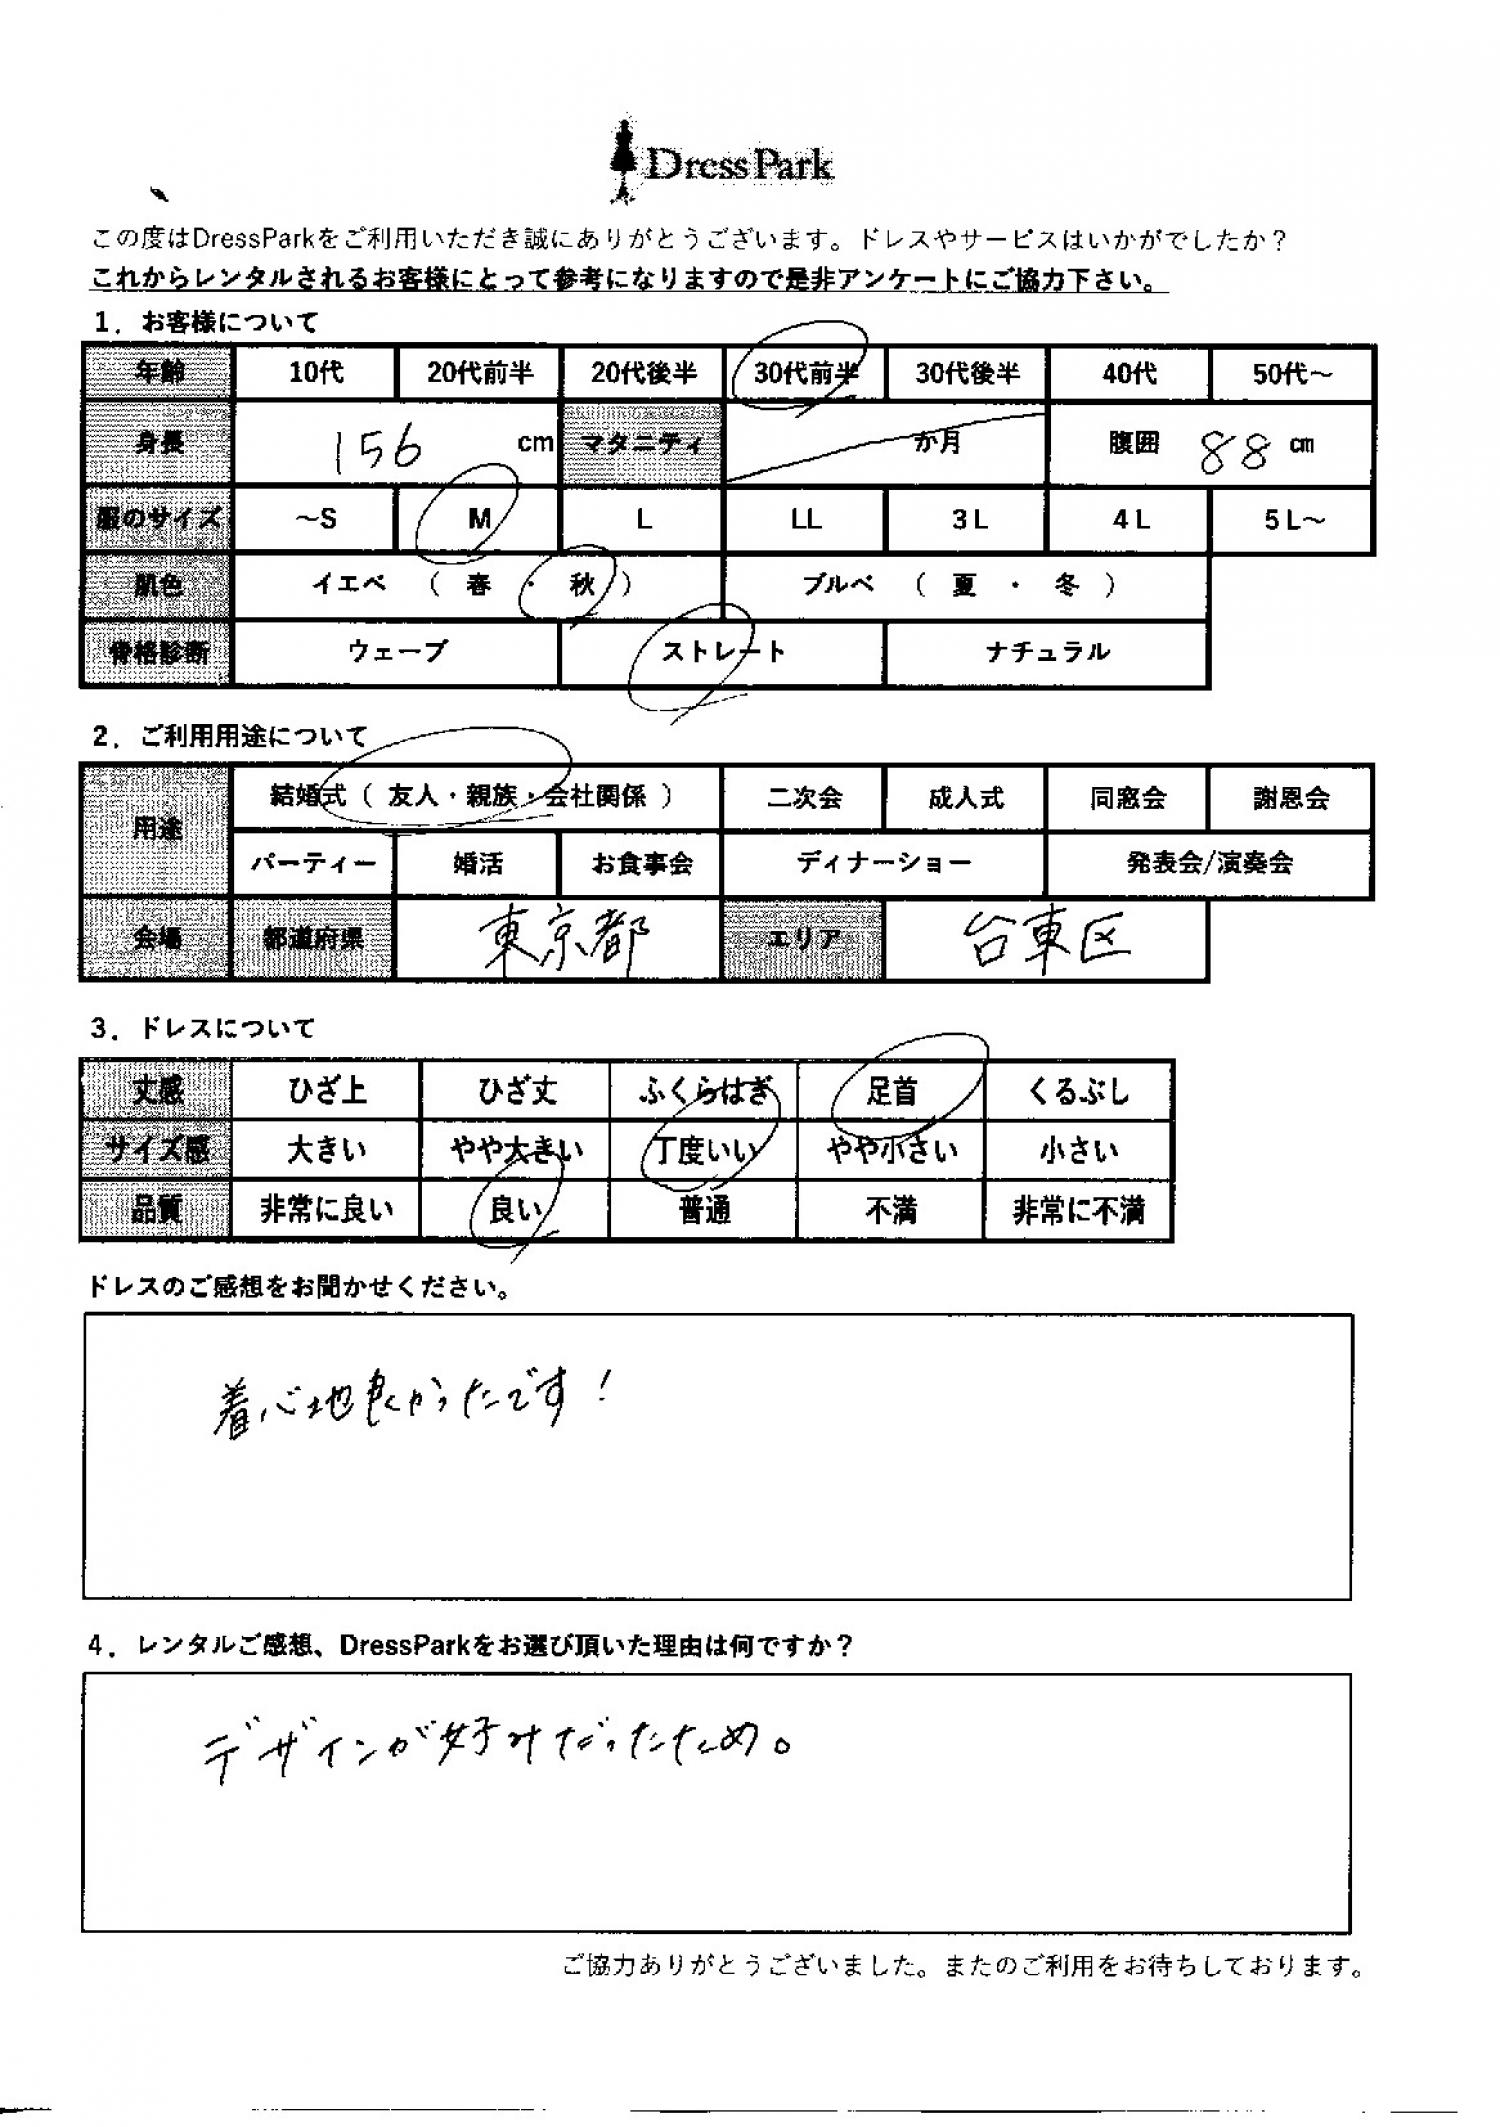 DressPark
この度はDressParkをご利用いただき誠にありがとうございます。ドレスやサービスはいかがでしたか？
これからレンタルされるお客様にとって参考になりますので是非アンケートにご協力下さい。
1．お客様について
年齢 10代 20代前半 20代後半 30代前半 30代後半 40代 50代～
身長 156 cm マタニティ か月 腹囲 88 cm
服のサイズ ～S M L LL 3L 4L 5L～
肌色 イエベ （ 春 ・ 秋 ） ブルベ （ 夏 ・ 冬 ）
骨格診断 ウェーブ ストレート ナチュラル
2．ご利用用途について
用途 結婚式（ 友人・親族・会社関係 ） 二次会 成人式 同窓会 謝恩会
パーティー 婚活 お食事会 ディナーショー 発表会/演奏会
会場 都道府県 東京都 エリア 台東区
3．ドレスについて
丈感 ひざ上 ひざ丈 ふくらはぎ 足首 くるぶし
サイズ感 大きい やや大きい 丁度いい やや小さい 小さい
品質 非常に良い 良い 普通 不満 非常に不満
ドレスのご感想をお聞かせください。
着心地良かったです！
4．レンタルご感想、DressParkをお選び頂いた理由は何ですか？
デザインが好みだったため。
ご協力ありがとうございました。またのご利用をお待ちしております。